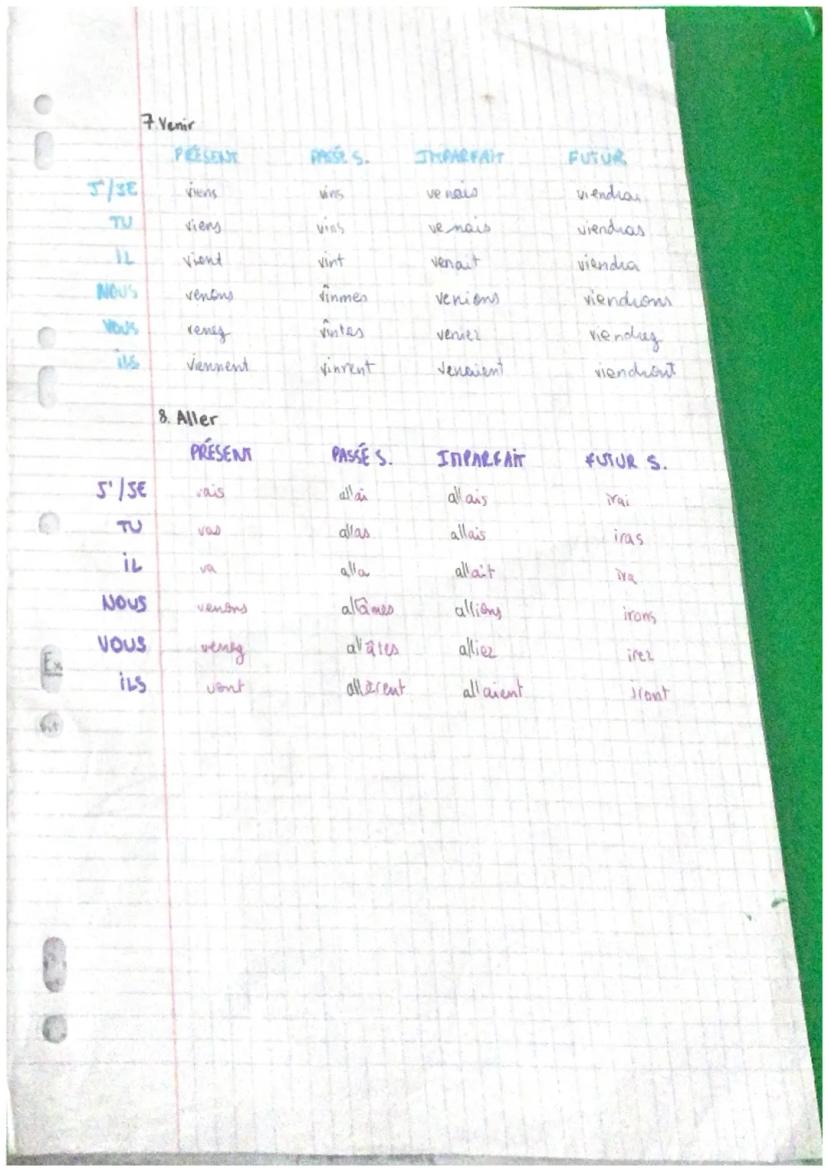 7. Venir
PRÉSENT PASSÉ S. IMPARFAIT FUTUR
J'/JE viens vins venais viendrai
TU viens vins venais viendras
IL vient vint venait viendra
NOUS venons vînmes venions viendrons
VOUS venez vîntes veniez viendrez
ILS viennent vinrent venaient viendront
8. Aller
PRÉSENT PASSÉ S. IMPARFAIT FUTUR S.
J'/JE vais allai allais irai
TU vas allas allais iras
IL va alla allait ira
NOUS venons allâmes allions irons
VOUS venez allâtes alliez irez
ILS vont allèrent allaient iront
Ex